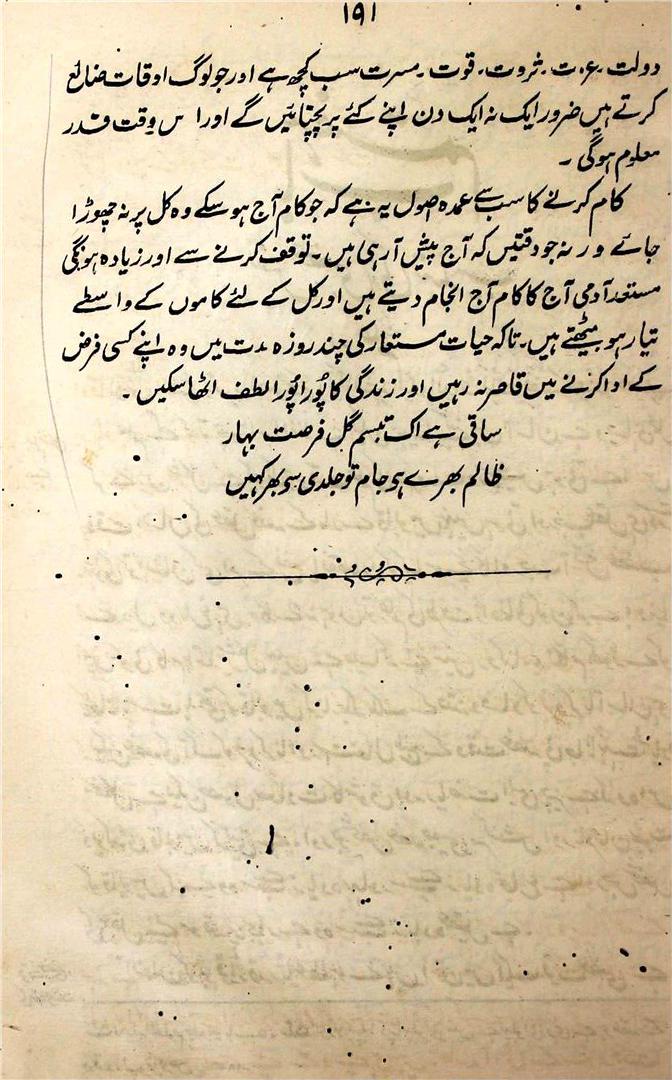 ۱۹۱
دولت ۔ عزت ۔ ثروت ۔ قوت ۔ مسرت سب کچھ ہے اور جو لوگ اوقات ضائع
کرتے ہیں ضرور ایک نہ ایک دن اپنے کئے پر پچتائیں گے اور اس وقت قدر
معلوم ہوگی ۔
کام کرنے کا سب سے عمدہ اصول یہ ہے کہ جو کام آج ہو سکے وہ کل پر نہ چھوڑا
جائے ورنہ جو دقتیں کہ آج پیش آ رہی ہیں ۔ توقف کرنے سے اور زیادہ ہونگی
مستعد آدمی آج کا کام آج انجام دیتے ہیں اور کل کے لئے کاموں کے واسطے
تیار ہو بیٹھتے ہیں ۔ تاکہ حیات مستعار کی چند روزہ مدت میں وہ اپنے کسی فرض
کے ادا کرنے میں قاصر نہ رہیں اور زندگی کا پُورا پُورا لطف اٹھا سکیں ۔
ساقی ہے اک تبسم گل فرصت بہار
ظالم بھرے ہے جام تو جلدی سے بھر کہیں